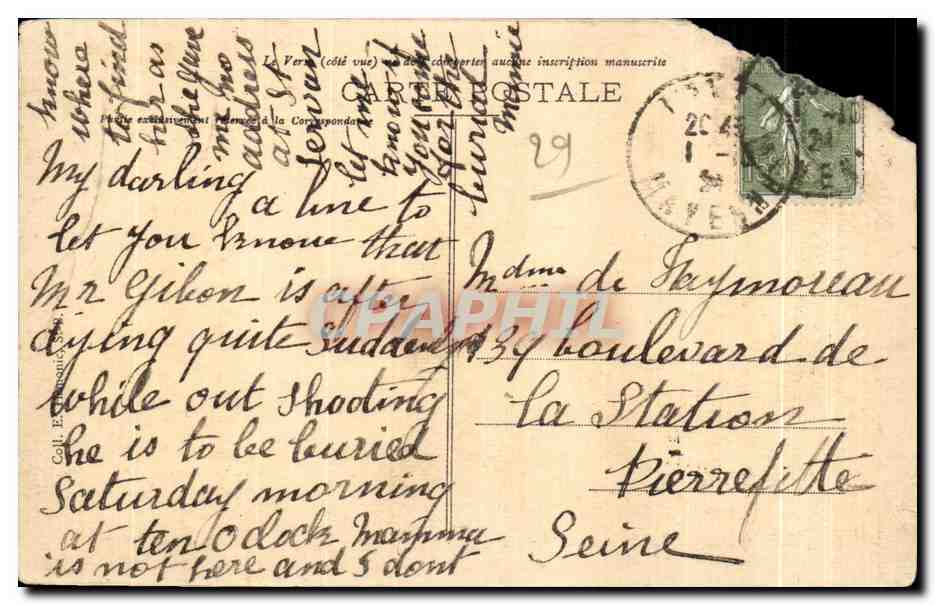 Le Verso (côté vue) ne doit comporter aucune inscription manuscrite
CARTE POSTALE
Partie exclusivement réservée à la Correspondance
29
My darling
a line to
let you know that
Mr Gibon is after
dying quite suddenly
while out shooting
he is to be buried
Saturday morning
at ten O clock Mamma
is not here and I dont
know
where
to find
her as
she gave
me no
address
at St
Servan
let me
know if
you come
for the
burial
Mamie
Mdme de Faymoreau
39 boulevard de
la Station
Pierrefitte
Seine
MAYENNE
CPAPHIL
Coll. E.